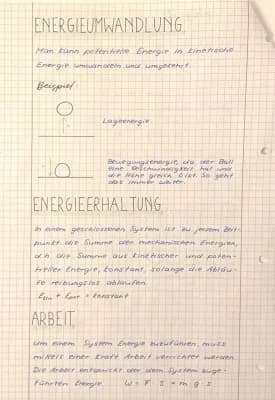 ENERGIEUMWANDLUNG
Man kann potentielle Energie in kinetische
Energie umwandeln und umgekehrt.
Beispiel:
Lageenergie
Bewegungsenergie, da der Ball
eine Geschwindigkeit hat und
die Höhe gleich 0 ist. So geht
das immer weiter.
ENERGIEERHALTUNG
In einem geschlossenen System ist zu jedem Zeit-
punkt die Summe der mechanischen Energien,
d.h. die Summe aus kinetischer und poten-
tieller Energie, konstant, solange die Abläu-
fe reibungslos ablaufen.
Ekin + Epot = konstant
ARBEIT
Um einem System Energie zuzuführen, muss
mittels einer Kraft Arbeit verrichtet werden.
Die Arbeit entspricht der dem System zuge-
führten Energie. W = F · s = m · g · s